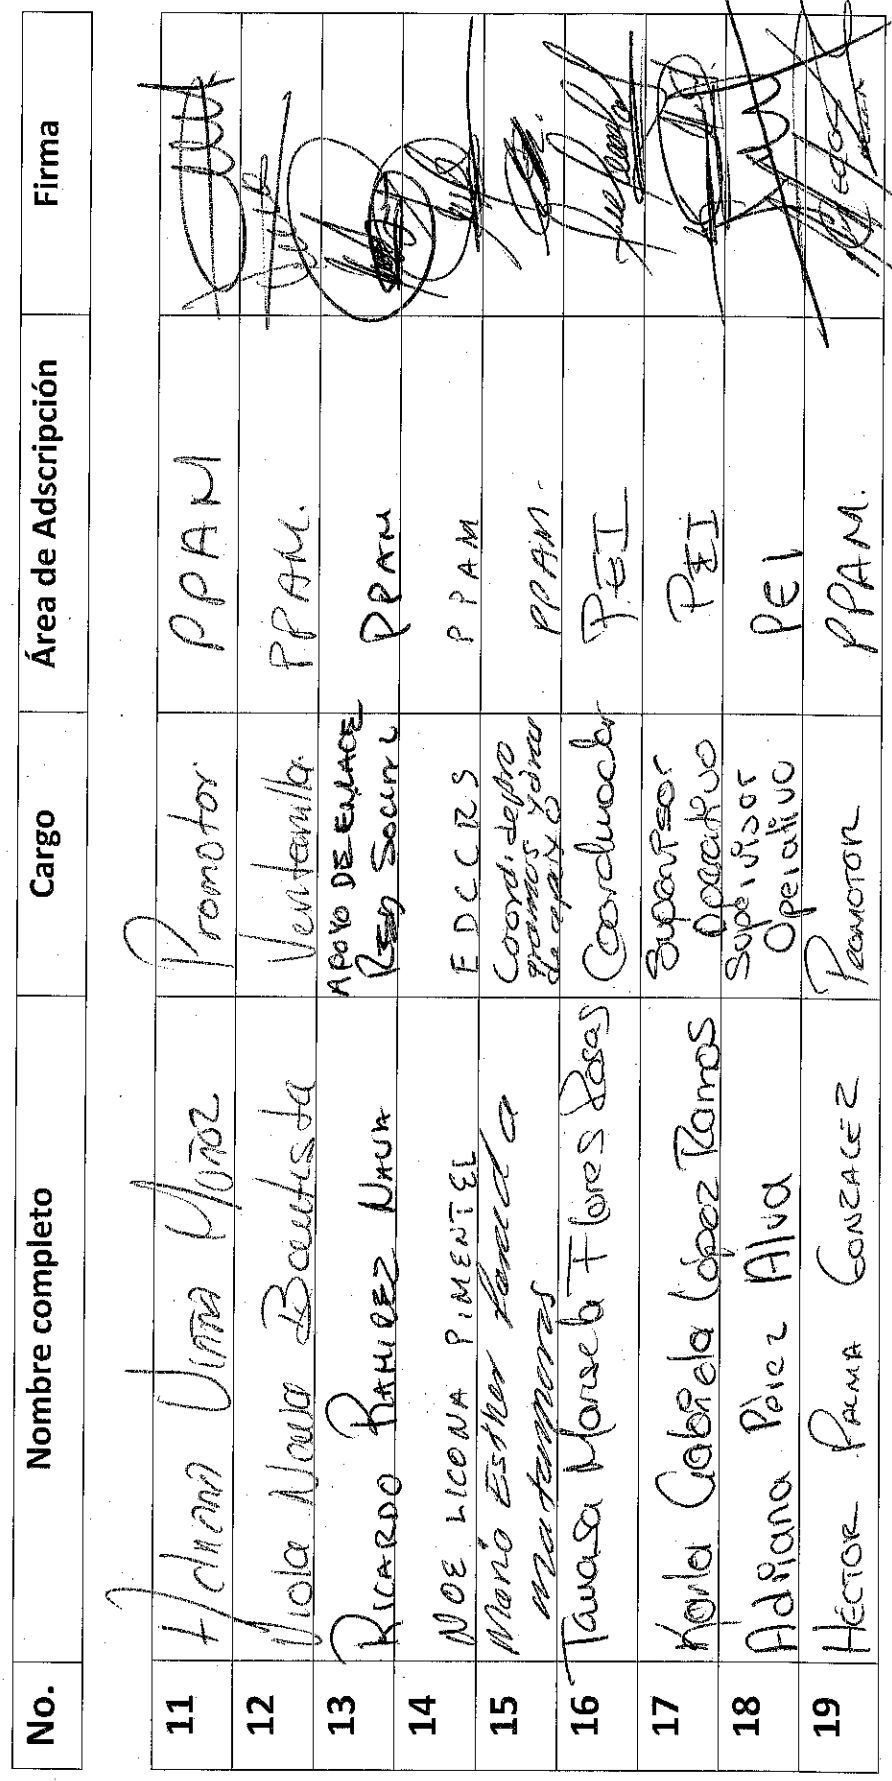 No. Nombre completo Cargo Área de Adscripción Firma
11 Adriana Viña Muñoz Promotor PPAM
12 Viola Nava Bautista Ventanilla PPAM.
13 RICARDO RAMIREZ NAVA APOYO DE ENLACE
RED SOCIAL PPAM
14 NOE LICONA PIMENTEL EDCCRS PPAM
15 María Esther Coord. de pro
matamoros gramas y áreas
de apoyo PPAM.
16 Marisela Flores Rosas Coordinador PEI
17 Karla Gabriela López Ramos Supervisor
Operativo PEI
18 Adriana Pérez Alva Supervisor
Operativo PEI
19 HÉCTOR PALMA GONZALEZ PROMOTOR PPAM.